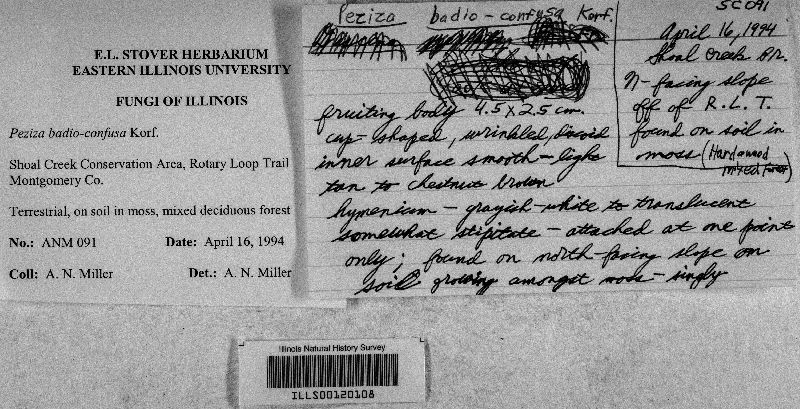 E.L. STOVER HERBARIUM
EASTERN ILLINOIS UNIVERSITY
FUNGI OF ILLINOIS
Peziza badio-confusa Korf.
Shoal Creek Conservation Area, Rotary Loop Trail
Montgomery Co.
Terrestrial, on soil in moss, mixed deciduous forest
No.: ANM 091 Date: April 16, 1994
Coll: A. N. Miller Det.: A. N. Miller
Peziza badio-confusa Korf.
fruiting body 4.5 x 2.5 cm.
cup-shaped, wrinkled,
inner surface smooth - light
tan to chestnut brown
hymenium - grayish-white to translucent
somewhat stipitate - attached at one point
only; found on north-facing slope on
soil growing amongst moss - singly
SC091
April 16, 1994
Shoal Creek
N-facing slope
off of R.L.T.
found on soil in
moss (Hardwood
mixed forest)
Illinois Natural History Survey
ILLS00120108